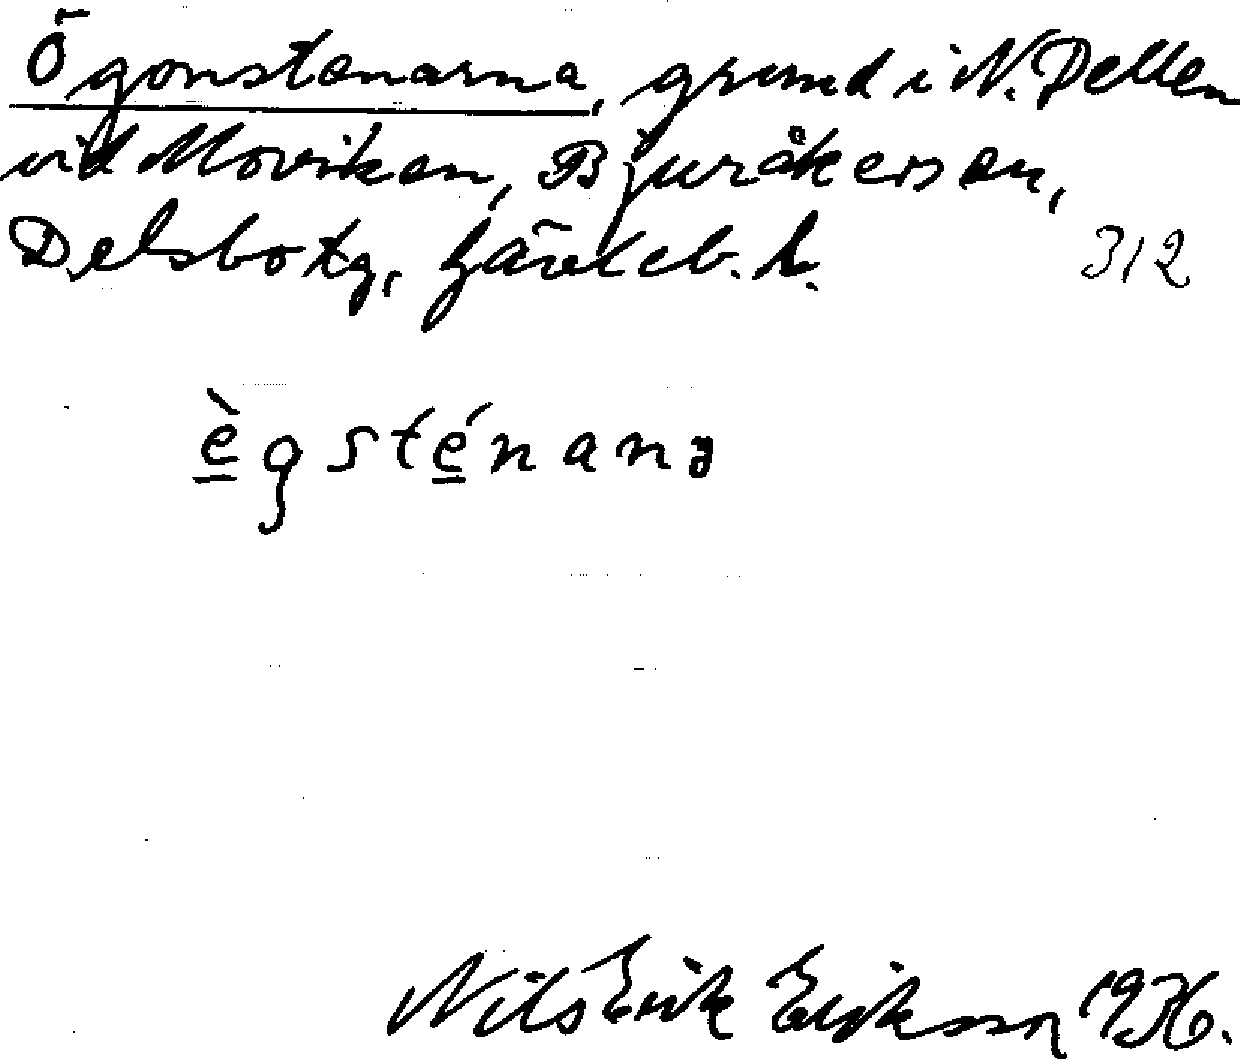 Ögonstenarna, grund i N. Dellen
vid Moviken, Bjuråkers sn,
Delsbo tg, Gävleb. l.
312
è̲gsté̲nanɜ
Nils Erik Eriksson 1936.